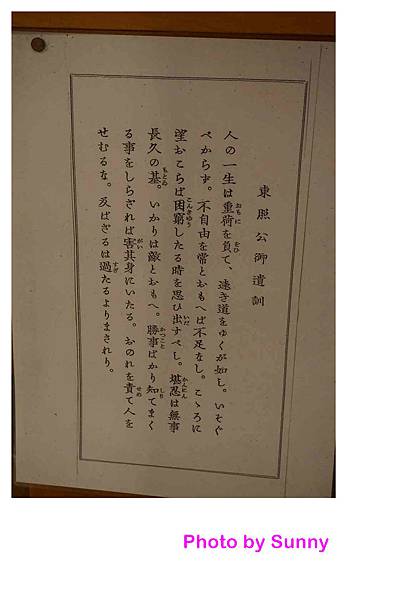 東照公御遺訓
人の一生は重荷を負て、遠き道をゆくが如し。いそぐ
べからず。不自由を常とおもへば不足なし。こゝろに
望おこらば困窮したる時を思ひ出すべし。堪忍は無事
長久の基。いかりは敵とおもへ。勝事ばかり知てまく
る事をしらざれば害其身にいたる。おのれを責て人を
せむるな。及ばざるは過たるよりまされり。
Photo by Sunny